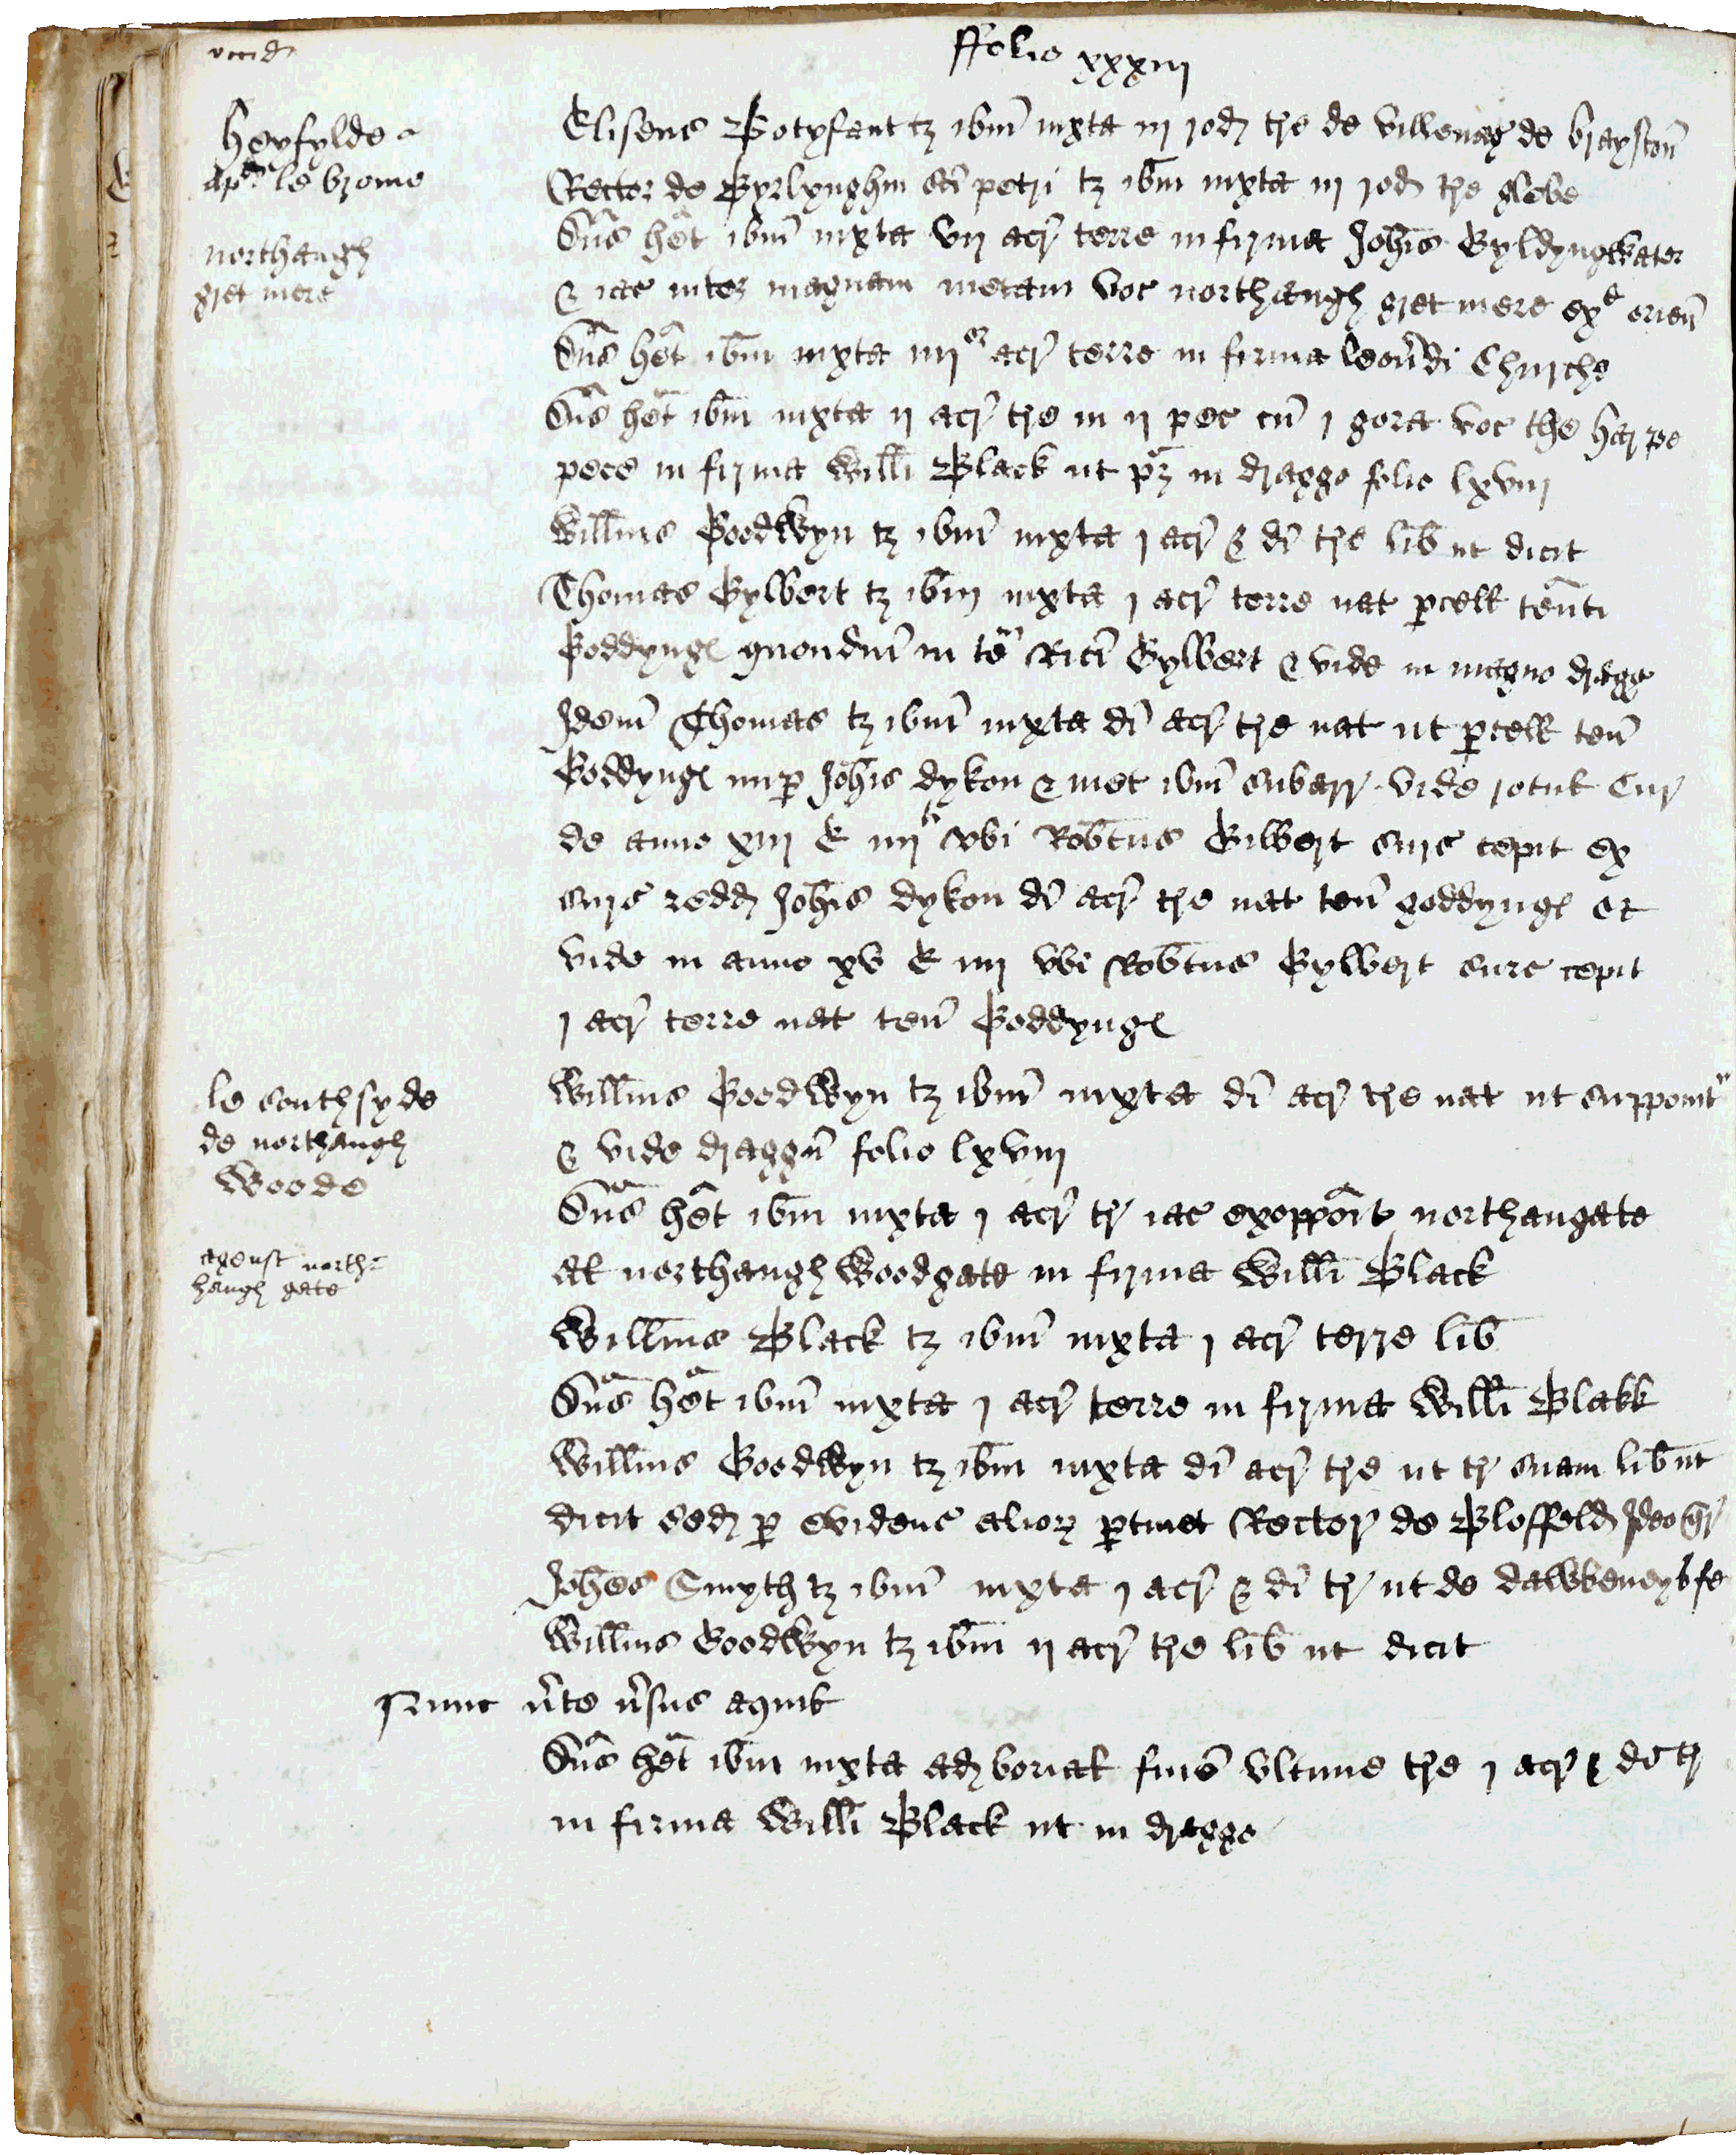 ffolio xxxiij
occid
Heyfylde
apᵈ le brome
Eliseus Botyfant tz ibm̄ iuxta iij rod tre de villenag de brayston̄
Rector de Byrlynghm sc̄i petri tz ibm̄ iuxta iij rod tre glebe
northaugh
gret mere
Dn̄s het ibm̄ iuxta vij acr terre in firma Joh̄is Gyldyngwater
& iac inter magnam metam voc northaugh gret mere exᵗ orien̄
Dn̄s het ibm̄ iuxta iiijᵒʳ acr terre in firma leon̄di Chirche
Dn̄s het ibm̄ iuxta ij acr tre in ij pec cū j gora voc the harpe
pece in firma Willi Black ut pz in dragge folio lxviij
Willm̄s Goodwyn tz ibm̄ iuxta j acr & di tre lib ut dicit
Thomas Gylbert tz ibm̄ iuxta j acr terre nat p̱cell ten̄ti
Goddyng quondm̄ in te Ric̄i Gylbert & vide in magno dragg
Idem Thomas tz ibm̄ iuxta di acr tre nat ut p̱cell ten̄
Goddyng nup̱ Joh̄is dykon & met ibm̄ subarr vide rotul Cur
de anno xiij E iiijᵗⁱ vbi Rob̄tus Gilbert surs cepit ex
surs redd Joh̄is dykon di acr tre nat ten̄ goddyng et
vide in anno xv E iiij vbi Rob̄tus Gylbert surs cepit
j acr terre nat ten̄ Goddyng
le southsyde
de northaugh
Woode
Willm̄s Goodwyn tz ibm̄ iuxta di acr tre nat ut supponitʳ
& vide draggū folio lxviij
Dn̄s het ibm̄ iuxta j acr tr iac exoppoit northaugate
agenst north=
haugh gate
al northaugh Woodgate in firma Willi Black
Willm̄s Black tz ibm̄ iuxta j acr terre lib
Dn̄s het ibm̄ iuxta j acr terre in firma Willi Blakk
Willm̄s Goodwyn tz ibm̄ iuxta di acr tre ut tr suam lib ut
dicit sed p̱ evidenc alior p̱tinet Rector de Bloffeld Ideo qr
Joh̄es Smyth tz ibm̄ iuxta j acr & di tr ut de
Willm̄s Goodwyn tz ibm̄ ij acr tre lib ut dicit
Nunc v̄te v̄sus aquil
Dn̄s het ibm̄ iuxta ad borial finē vltime tre j acr & di tr
in firma Willi Black ut in dragge